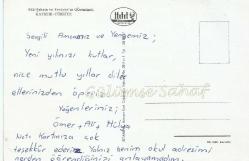 KAYSERİ - TÜRKİYE
Sevgili Amcamız ve Yengemiz;
Yeni yılınızı kutlar,
nice mutlu yıllar diler
ellerinizden öperiz.
Yeğenleriniz;
Ömer + Ali, Hülya
Not: Kartınıza çok
teşekkür ederiz. Yalnız benim okul adresimi
nerden öğrendiğinizi anlayamadım.
Gülümse Sahaf